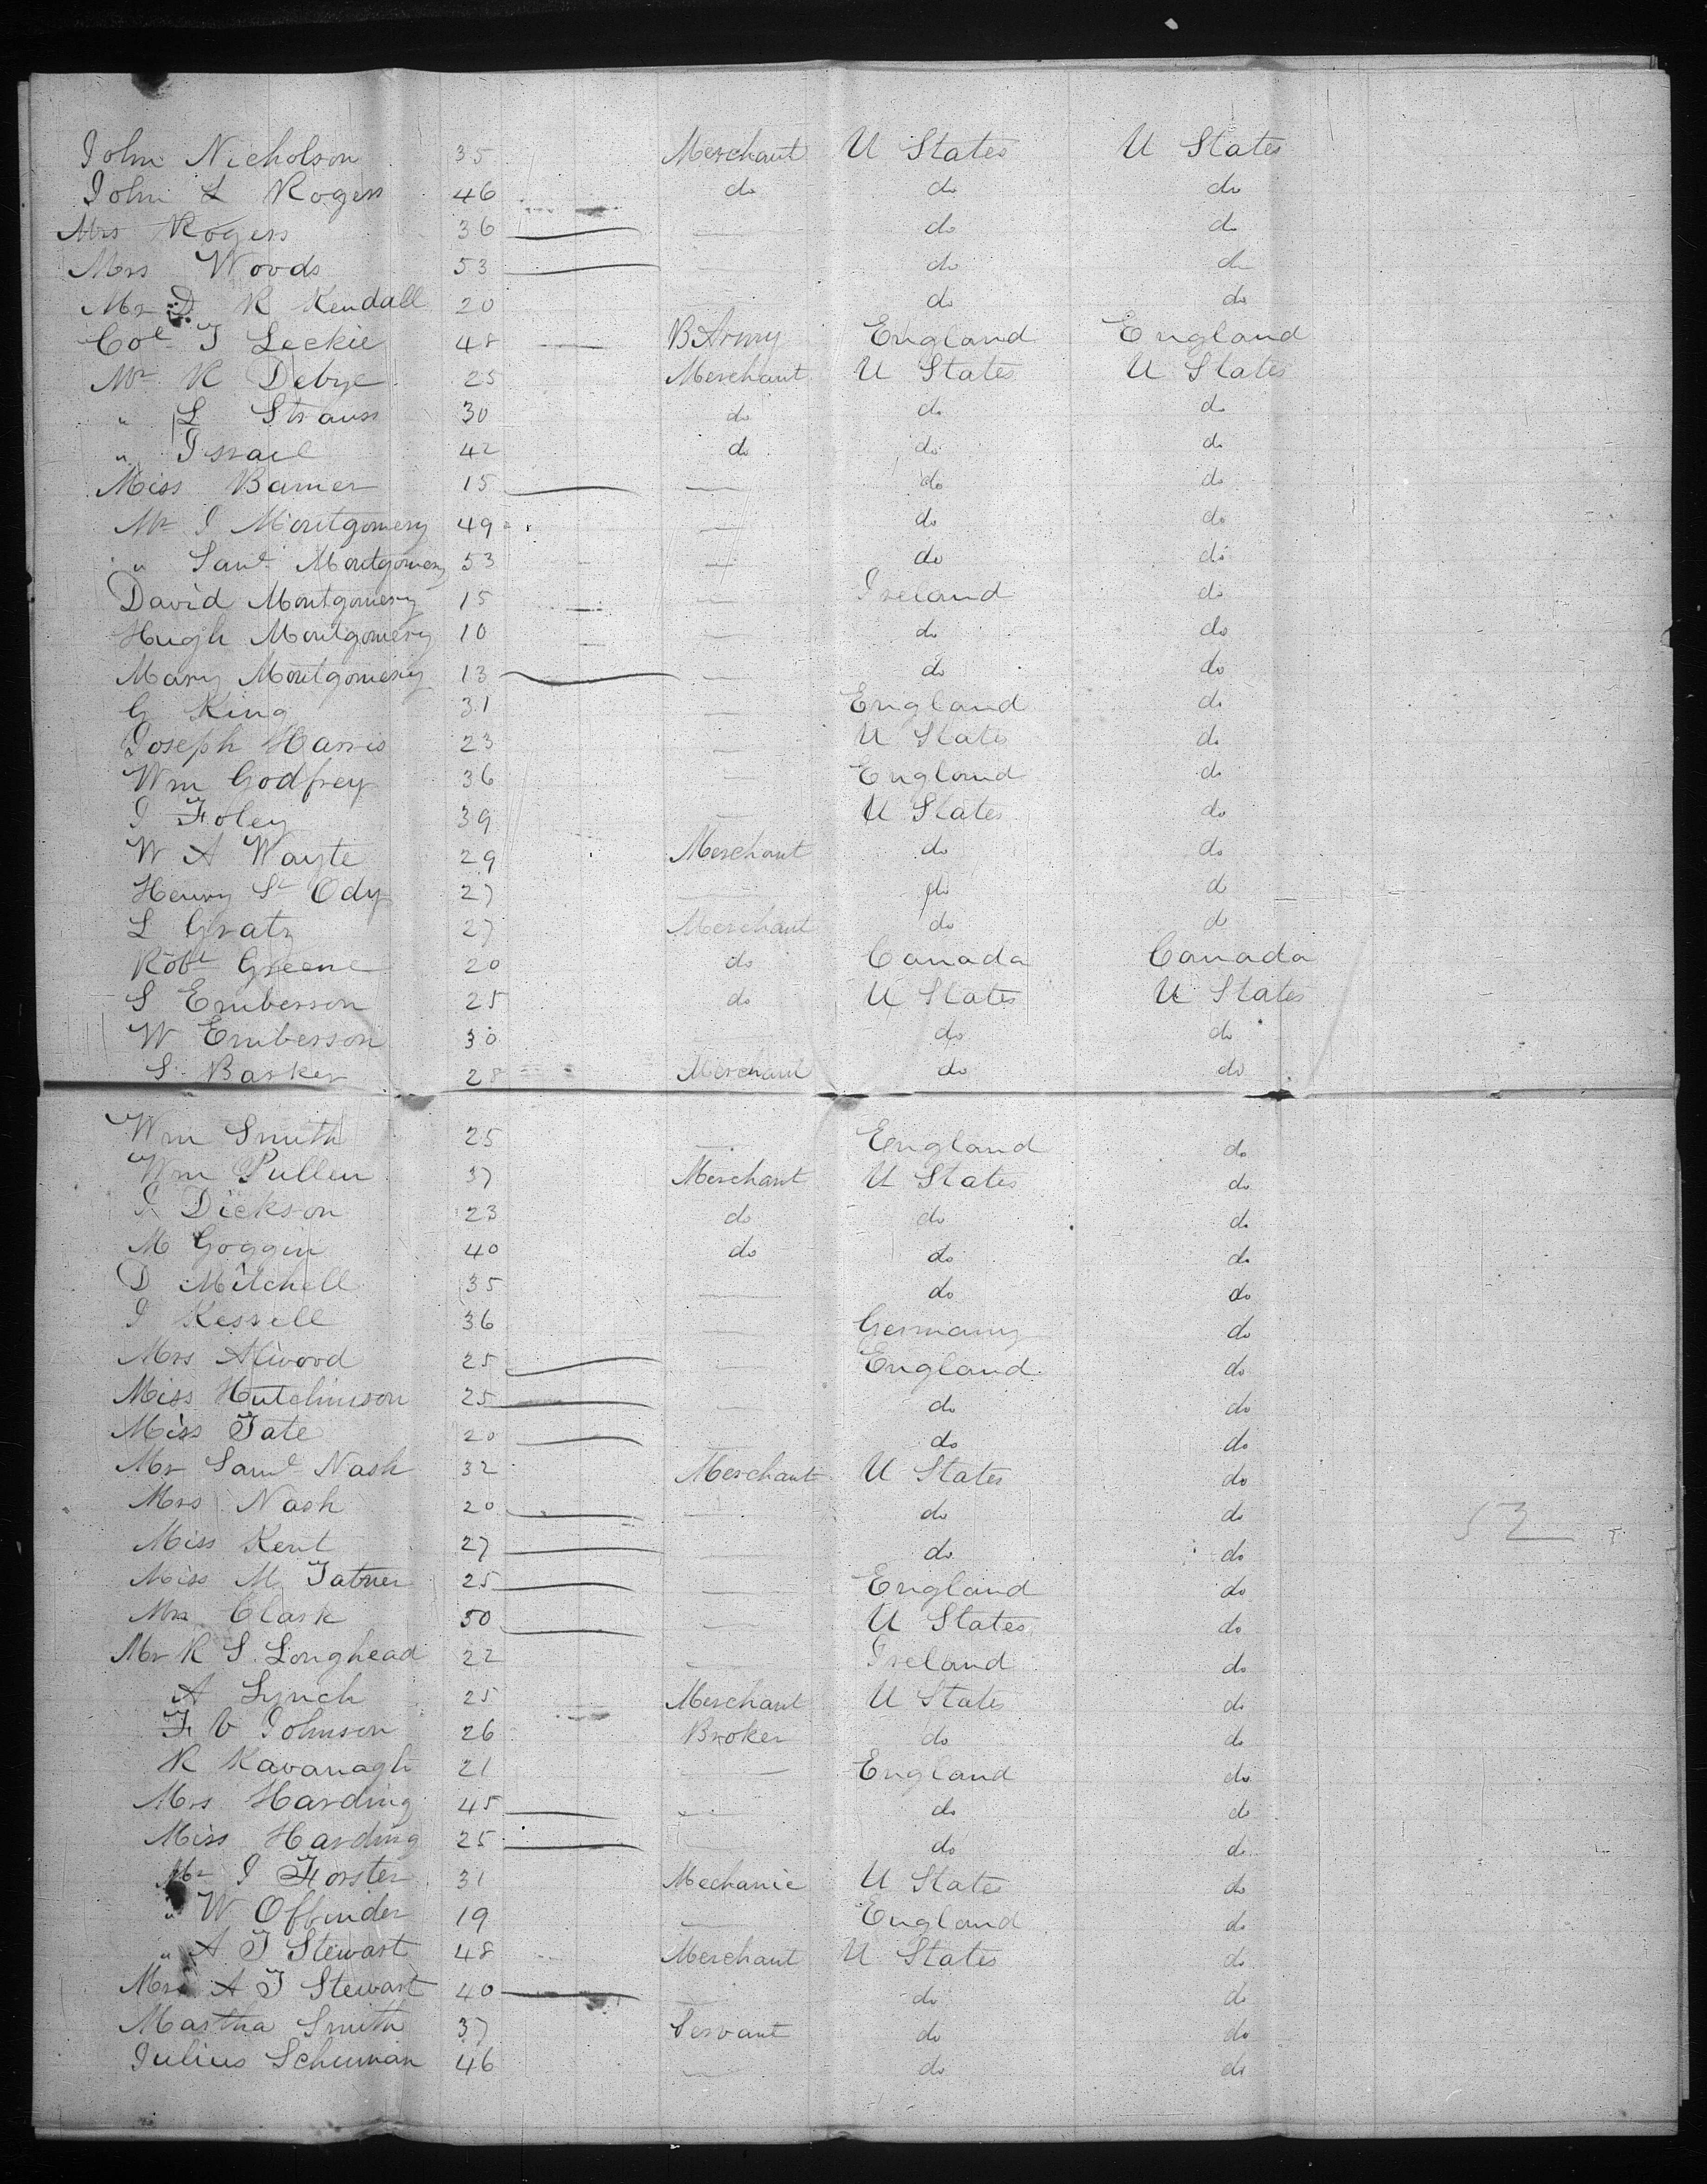 John Nicholson 35 Merchant U States U States
John L Rogers 46 do do do
Mrs Rogers 36 — do do
Mrs Woods 53 — do do
Mr D R Kendall 20 do do
Col J Leckie 48 — B Army England England
Mr R Debye 25 Merchant U States U States
" L Strauss 30 do do do
" Israel 42 do do do
Miss Bamer 15 — do do
Mr J Montgomery 49 — do do
" Saml Montgomery 53 — do do
David Montgomery 15 — Ireland do
Hugh Montgomery 10 — do do
Mary Montgomery 13 — do do
G King 31 — England do
Joseph Harris 23 — U States do
Wm Godfrey 36 — England do
J Foley 39 — U States do
W A Wayte 29 Merchant do do
Henry St Ody 27 — do do
L Gratz 27 Merchant do do
Robt Greene 20 do Canada Canada
S Emberson 25 do U States U States
W Emberson 30 do do
S Barker 28 Merchant do do
Wm Smith 25 — England do
Wm Pullen 37 Merchant U States do
J Dickson 23 do do do
M Goggin 40 do do do
D Mitchell 35 — do do
J Kessell 36 — Germany do
Mrs Atwood 25 — England do
Miss Hutchinson 25 — do do
Miss Tate 20 — do do
Mr Saml Nash 32 Merchant U States do
Mrs Nash 20 — do do 53
Miss Kent 27 — do do
Miss M Tatner 25 — England do
Mrs Clark 50 — U States do
Mr R S Longhead 22 — Ireland do
A Lynch 25 Merchant U States do
F V Johnson 26 Broker do do
R Kavanagh 21 — England do
Mrs Harding 45 — do do
Miss Harding 25 — do do
Mr J Forster 31 Mechanic U States do
" W Offinder 19 — England do
" A J Stewart 48 Merchant U States do
Mrs A J Stewart 40 — do do
Martha Smith 37 Servant do do
Julius Schuman 46 — do do